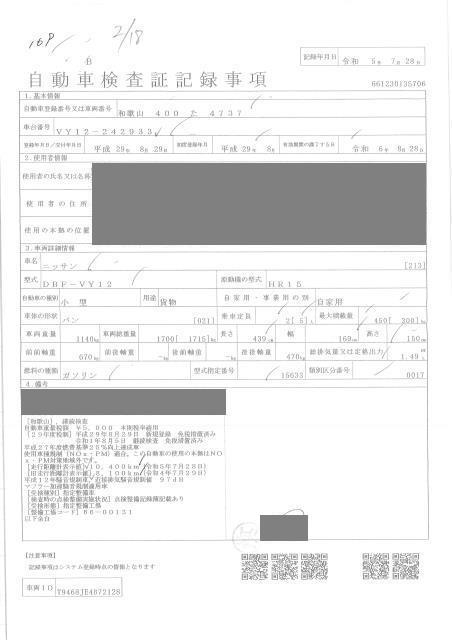 169
2/18
B
記録年月日 令和 5年 7月28日
自動車検査証記録事項
661230135706
1.基本情報
自動車登録番号又は車両番号 和歌山 400 た 4737
車台番号 VY12-242933
登録年月日/交付年月日 平成 29年 8月29日 初度登録年月 平成 29年 8月 有効期間の満了する日 令和 6年 8月28日
2.使用者情報
使用者の氏名又は名称
使用者の住所
使用の本拠の位置
3.車両詳細情報
車名 ニッサン [213]
型式 DBF-VY12 原動機の型式 HR15
自動車の種別 小型 用途 貨物 自家用・事業用の別 自家用
車体の形状 バン [021] 乗車定員 2[ 5]人 最大積載量 450[ 300]kg
車両重量 1140kg 車両総重量 1700[ 1715]kg 長さ 439cm 幅 169cm 高さ 150cm
前前軸重 670kg 前後軸重 -kg 後前軸重 -kg 後後軸重 470kg 総排気量又は定格出力 1.49L
燃料の種類 ガソリン 型式指定番号 15633 類別区分番号 0017
4.備考
[和歌山], 継続検査
自動車重量税額 ¥5,000 本則税率適用
[29年度税制] 平成29年8月29日 新規登録 免税措置済み
令和1年8月5日 継続検査 免税措置済み
平成27年度燃費基準20%向上達成車
使用車種規制(NOx・PM)適合,この自動車の使用の本拠はNO
x・PM対策地域外です。
[走行距離計表示値]10,400km(令和5年7月28日)
[旧走行距離計表示値]8,100km(令和4年7月29日)
平成12年騒音規制車,近接排気騒音規制値 97dB
マフラー加速騒音規制適用車
[受検種別] 指定整備車
[検査時の点検整備実施状況] 点検整備記録簿記載あり
[受検形態] 指定整備工場
[整備工場コード] 66-00131
以下余白
[注意事項]
記録事項はシステム登録時点の情報となります
車両ID T9468JE4872128